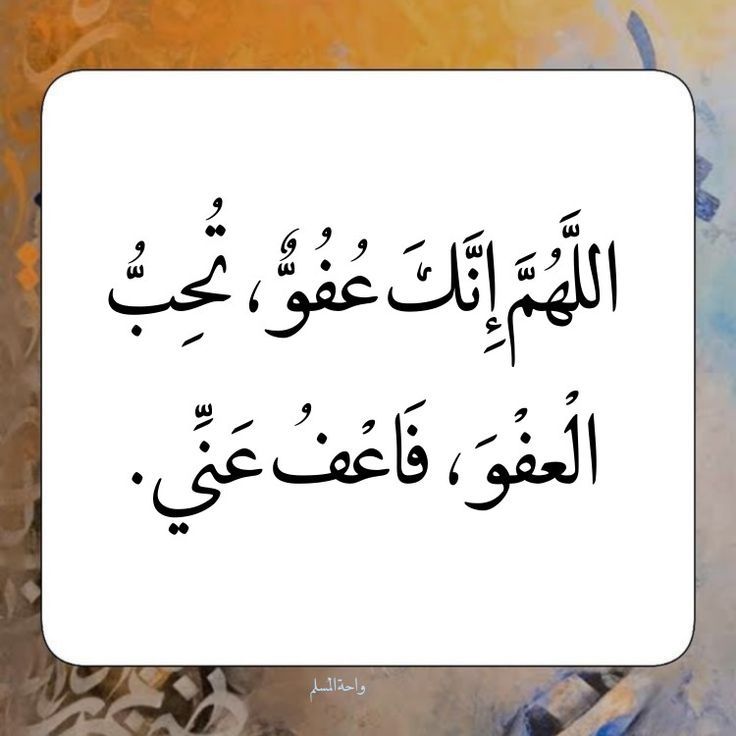 اللَّهُمَّ إِنَّكَ عُفُوٌّ، تُحِبُّ
الْعفْوَ، فَاعْفُ عَنِّي.
واحة المسلم